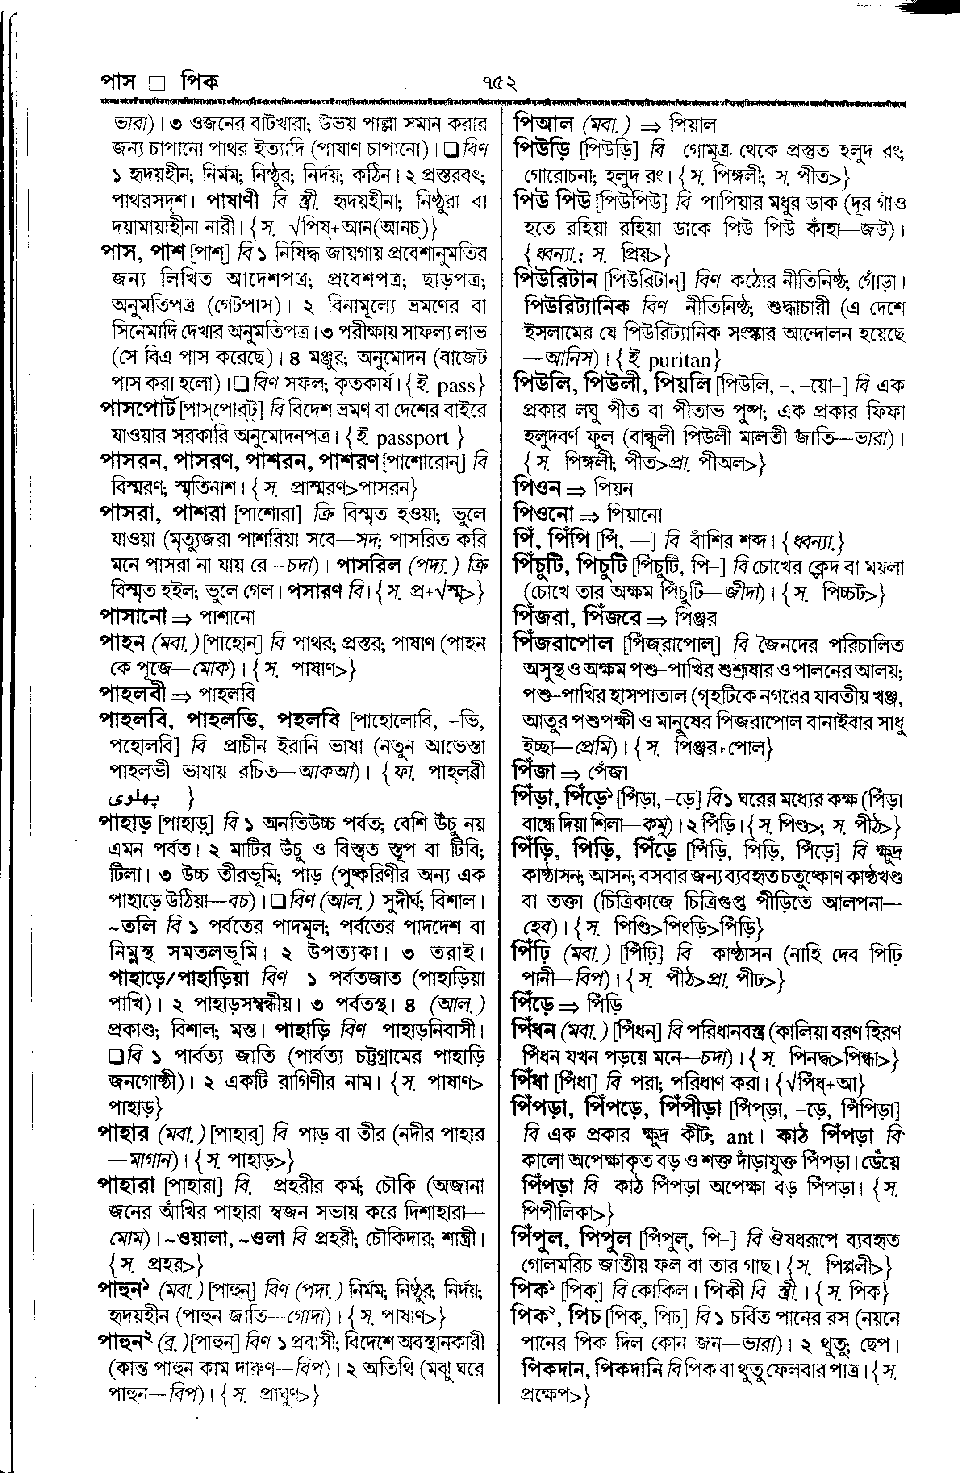 পাস □ পিক
৭৫২
ভারা)। ৩ ওজনের বাটখারা; উভয় পাল্লা সমান করার
জন্য চাপানো পাথর ইত্যাদি (পাষাণ চাপানো)। ❑ বিণ
১ হৃদয়হীন; নির্মম; নিষ্ঠুর; নির্দয়; কঠিন। ২ প্রস্তরবৎ;
পাথরসদৃশ। পাষাণী বি স্ত্রী. হৃদয়হীনা; নিষ্ঠুরা বা
দয়ামায়াহীনা নারী। {স. √পিষ্+আন(আনচ্)}
পাস, পাশ [পাশ্] বি ১ নিষিদ্ধ জায়গায় প্রবেশানুমতির
জন্য লিখিত আদেশপত্র; প্রবেশপত্র; ছাড়পত্র;
অনুমতিপত্র (গেটপাস)। ২ বিনামূল্যে ভ্রমণের বা
সিনেমাদি দেখার অনুমতিপত্র। ৩ পরীক্ষায় সাফল্য লাভ
(সে বিএ পাস করেছে)। ৪ মঞ্জুর; অনুমোদন (বাজেট
পাস করা হলো)। ❑ বিণ সফল; কৃতকার্য। {ই. pass}
পাসপোর্ট [পাস্‌পোর্‌ট্] বি বিদেশ ভ্রমণ বা দেশের বাইরে
যাওয়ার সরকারি অনুমোদনপত্র। {ই passport }
পাসরন, পাসরণ, পাশরন, পাশরণ [পাশোরোন্] বি
বিস্মরণ; স্মৃতিনাশ। {স. প্রাস্মরণ>পাসরন}
পাসরা, পাশরা [পাশোরা] ক্রি বিস্মৃত হওয়া; ভুলে
যাওয়া (মৃত্যুজরা পাশরিয়া সবে—সদ; পাসরিত করি
মনে পাসরা না যায় রে--চদা)। পাসরিল (পদ্য.) ক্রি
বিস্মৃত হইল; ভুলে গেল। পসারণ বি। {স. প্র+√স্মৃ>}
পাসানো ⇒ পাশানো
পাহন (মবা.) [পাহোন্] বি পাথর; প্রস্তর; পাষাণ (পাহন
কে পূজে—মোক)। {স. পাষাণ>}
পাহলবী ⇒ পাহলবি
পাহলবি, পাহলভি, পহলবি [পাহোলোবি, -ভি,
পহোলবি] বি প্রাচীন ইরানি ভাষা (নতুন আভেস্তা
পাহলভী ভাষায় রচিত—আকআ)। {ফা. পাহ্‌লৱী
پهلوی }
পাহাড় [পাহাড়্] বি ১ অনতিউচ্চ পর্বত; বেশি উঁচু নয়
এমন পর্বত। ২ মাটির উঁচু ও বিস্তৃত স্তূপ বা ঢিবি;
টিলা। ৩ উচ্চ তীরভূমি; পাড় (পুষ্করিণীর অন্য এক
পাহাড়ে উঠিয়া—বচ)। ❑ বিণ (আল.) সুদীর্ঘ; বিশাল।
~তলি বি ১ পর্বতের পাদমূল; পর্বতের পাদদেশ বা
নিম্নস্থ সমতলভূমি। ২ উপত্যকা। ৩ তরাই।
পাহাড়ে/পাহাড়িয়া বিণ ১ পর্বতজাত (পাহাড়িয়া
পাখি)। ২ পাহাড়সম্বন্ধীয়। ৩ পর্বতস্থ। ৪ (আল.)
প্রকাণ্ড; বিশাল; মস্ত। পাহাড়ি বিণ পাহাড়নিবাসী।
❑ বি ১ পার্বত্য জাতি (পার্বত্য চট্টগ্রামের পাহাড়ি
জনগোষ্ঠী)। ২ একটি রাগিণীর নাম। {স. পাষাণ>
পাহাড়}
পাহার (মবা.) [পাহার্] বি পাড় বা তীর (নদীর পাহার
—মাগান)। {স. পাহাড়>}
পাহারা [পাহারা] বি. প্রহরীর কর্ম; চৌকি (অজানা
জনের আঁখির পাহারা স্বজন সভায় করে দিশাহারা—
মোম)। ~ওয়ালা, ~ওলা বি প্রহরী; চৌকিদার; শাস্ত্রী।
{স. প্রহর>}
পাহুন¹ (মবা.) [পাহুন্] বিণ (পদ্য.) নির্মম; নিষ্ঠুর; নির্দয়;
হৃদয়হীন (পাহুন জাতি—গোদা)। {স. পাষাণ>}
পাহুন² (ব্র.) [পাহুন্] বিণ ১ প্রবাসী; বিদেশে অবস্থানকারী
(কান্ত পাহুন কাম দারুণ—বিপ)। ২ অতিথি (মঝু ঘরে
পাহুন—বিপ)। {স. প্রাঘুণ>}
পিআল (মবা.) ⇒ পিয়াল
পিউড়ি [পিউড়ি] বি গোমূত্র থেকে প্রস্তুত হলুদ রং;
গোরোচনা; হলুদ রং। {স. পিঙ্গলী; স. পীত>}
পিউ পিউ [পিউপিউ] বি পাপিয়ার মধুর ডাক (দূর গাঁও
হতে রহিয়া রহিয়া ডাকে পিউ পিউ কাঁহা—জউ)।
{ধ্বন্যা.; স. প্রিয়>}
পিউরিটান [পিউরিটান্] বিণ কঠোর নীতিনিষ্ঠ; গোঁড়া।
পিউরিট্যানিক বিণ নীতিনিষ্ঠ; শুদ্ধাচারী (এ দেশে
ইসলামের যে পিউরিট্যানিক সংস্কার আন্দোলন হয়েছে
—আনিস)। {ই puritan}
পিউলি, পিউলী, পিয়লি [পিউলি, -, -য়ো-] বি এক
প্রকার লঘু পীত বা পীতাভ পুষ্প; এক প্রকার ফিফা
হলুদবর্ণ ফুল (বান্ধুলী পিউলী মালতী জাতি—ভারা)।
{স. পিঙ্গলী; পীত>প্রা. পীঅল>}
পিওন ⇒ পিয়ন
পিওনো ⇒ পিয়ানো
পিঁ, পিঁপি [পিঁ, —] বি বাঁশির শব্দ। {ধ্বন্যা.}
পিঁচুটি, পিচুটি [পিঁচুটি, পি-] বি চোখের ক্লেদ বা ময়লা
(চোখে তার অক্ষম পিঁচুটি—জীদা)। {স. পিচ্চট>}
পিঁজরা, পিঁজরে ⇒ পিঞ্জর
পিঁজরাপোল [পিঁজ্‌রাপোল্] বি জৈনদের পরিচালিত
অসুস্থ ও অক্ষম পশু-পাখির শুশ্রূষার ও পালনের আলয়;
পশু-পাখির হাসপাতাল (গৃহটিকে নগরের যাবতীয় খঞ্জ,
আতুর পশুপক্ষী ও মানুষের পিঁজরাপোল বানাইবার সাধু
ইচ্ছা—প্রেমি)। {স. পিঞ্জর+পোল}
পিঁজা ⇒ পেঁজা
পিঁড়া, পিঁড়ে¹ [পিঁড়া, -ড়ে] বি ১ ঘরের মধ্যের কক্ষ (পিঁড়া
বান্ধে দিয়া শিলা—কমু)। ২ পিঁড়ি। {স. পিণ্ড>; স. পীঠ>}
পিঁড়ি, পিড়ি, পিঁড়ে [পিঁড়ি, পিড়ি, পিঁড়ে] বি ক্ষুদ্র
কাষ্ঠাসন; আসন; বসবার জন্য ব্যবহৃত চতুষ্কোণ কাষ্ঠখণ্ড
বা তক্তা (চিত্রিকাজে চিত্রিগুপ্ত পীড়িতে আলপনা—
হেব)। {স. পিণ্ডি>পিংড়ি>পিঁড়ি}
পিঁঢ়ি (মবা.) [পিঁঢ়ি] বি কাষ্ঠাসন (নাহি দেব পিঢ়ি
পানী—বিপ)। {স. পীঠ>প্রা. পীঢ>}
পিঁড়ে ⇒ পিঁড়ি
পিঁধন (মবা.) [পিঁধন্] বি পরিধানবস্ত্র (কালিয়া বরণ হিরণ
পিঁধন যখন পড়য়ে মনে—চদা)। {স. পিনদ্ধ>পিন্ধা>}
পিঁধা [পিঁধা] বি পরা; পরিধাণ করা। {√পিঁধ্+আ}
পিঁপড়া, পিঁপড়ে, পিঁপীড়া [পিঁপ্‌ড়া, -ড়ে, পিঁপিড়া]
বি এক প্রকার ক্ষুদ্র কীট; ant। কাঠ পিঁপড়া বি
কালো অপেক্ষাকৃত বড় ও শক্ত দাঁড়াযুক্ত পিঁপড়া। ডেঁয়ে
পিঁপড়া বি কাঠ পিঁপড়া অপেক্ষা বড় পিঁপড়া। {স.
পিপীলিকা>}
পিঁপুল, পিপুল [পিঁপুল্, পি-] বি ঔষধরূপে ব্যবহৃত
গোলমরিচ জাতীয় ফল বা তার গাছ। {স. পিপ্পলী>}
পিক¹ [পিক্] বি কোকিল। পিকী বি স্ত্রী.। {স. পিক}
পিক², পিচ [পিক্, পিচ্] বি ১ চর্বিত পানের রস (নয়নে
পানের পিক দিল কোন জন—ভারা)। ২ থুতু; ছেপ।
পিকদান, পিকদানি বি পিক বা থুতু ফেলবার পাত্র। {স.
প্রক্ষেপ>}